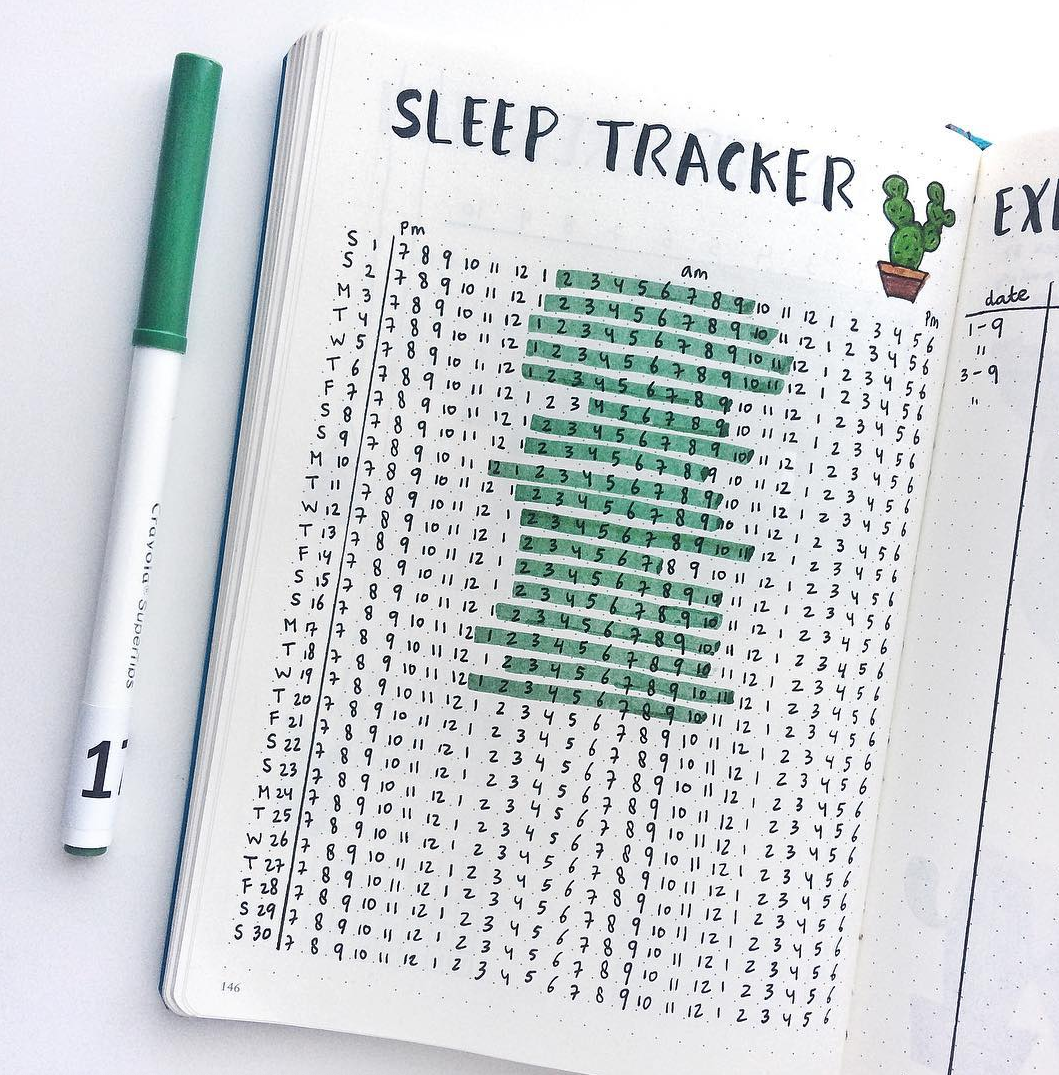 SLEEP TRACKER
Pm
am
Pm
S 1 7 8 9 10 11 12 1 2 3 4 5 6 7 8 9 10 11 12 1 2 3 4 5 6
S 2 7 8 9 10 11 12 1 2 3 4 5 6 7 8 9 10 11 12 1 2 3 4 5 6
M 3 7 8 9 10 11 12 1 2 3 4 5 6 7 8 9 10 11 12 1 2 3 4 5 6
T 4 7 8 9 10 11 12 1 2 3 4 5 6 7 8 9 10 11 12 1 2 3 4 5 6
W 5 7 8 9 10 11 12 1 2 3 4 5 6 7 8 9 10 11 12 1 2 3 4 5 6
T 6 7 8 9 10 11 12 1 2 3 4 5 6 7 8 9 10 11 12 1 2 3 4 5 6
F 7 7 8 9 10 11 12 1 2 3 4 5 6 7 8 9 10 11 12 1 2 3 4 5 6
S 8 7 8 9 10 11 12 1 2 3 4 5 6 7 8 9 10 11 12 1 2 3 4 5 6
S 9 7 8 9 10 11 12 1 2 3 4 5 6 7 8 9 10 11 12 1 2 3 4 5 6
M 10 7 8 9 10 11 12 1 2 3 4 5 6 7 8 9 10 11 12 1 2 3 4 5 6
T 11 7 8 9 10 11 12 1 2 3 4 5 6 7 8 9 10 11 12 1 2 3 4 5 6
W 12 7 8 9 10 11 12 1 2 3 4 5 6 7 8 9 10 11 12 1 2 3 4 5 6
T 13 7 8 9 10 11 12 1 2 3 4 5 6 7 8 9 10 11 12 1 2 3 4 5 6
F 14 7 8 9 10 11 12 1 2 3 4 5 6 7 8 9 10 11 12 1 2 3 4 5 6
S 15 7 8 9 10 11 12 1 2 3 4 5 6 7 8 9 10 11 12 1 2 3 4 5 6
S 16 7 8 9 10 11 12 1 2 3 4 5 6 7 8 9 10 11 12 1 2 3 4 5 6
M 17 7 8 9 10 11 12 1 2 3 4 5 6 7 8 9 10 11 12 1 2 3 4 5 6
T 18 7 8 9 10 11 12 1 2 3 4 5 6 7 8 9 10 11 12 1 2 3 4 5 6
W 19 7 8 9 10 11 12 1 2 3 4 5 6 7 8 9 10 11 12 1 2 3 4 5 6
T 20 7 8 9 10 11 12 1 2 3 4 5 6 7 8 9 10 11 12 1 2 3 4 5 6
F 21 7 8 9 10 11 12 1 2 3 4 5 6 7 8 9 10 11 12 1 2 3 4 5 6
S 22 7 8 9 10 11 12 1 2 3 4 5 6 7 8 9 10 11 12 1 2 3 4 5 6
S 23 7 8 9 10 11 12 1 2 3 4 5 6 7 8 9 10 11 12 1 2 3 4 5 6
M 24 7 8 9 10 11 12 1 2 3 4 5 6 7 8 9 10 11 12 1 2 3 4 5 6
T 25 7 8 9 10 11 12 1 2 3 4 5 6 7 8 9 10 11 12 1 2 3 4 5 6
W 26 7 8 9 10 11 12 1 2 3 4 5 6 7 8 9 10 11 12 1 2 3 4 5 6
T 27 7 8 9 10 11 12 1 2 3 4 5 6 7 8 9 10 11 12 1 2 3 4 5 6
F 28 7 8 9 10 11 12 1 2 3 4 5 6 7 8 9 10 11 12 1 2 3 4 5 6
S 29 7 8 9 10 11 12 1 2 3 4 5 6 7 8 9 10 11 12 1 2 3 4 5 6
S 30 7 8 9 10 11 12 1 2 3 4 5 6 7 8 9 10 11 12 1 2 3 4 5 6
146
EX
date
1-9
"
3-9
"
Crayola Supertips
17